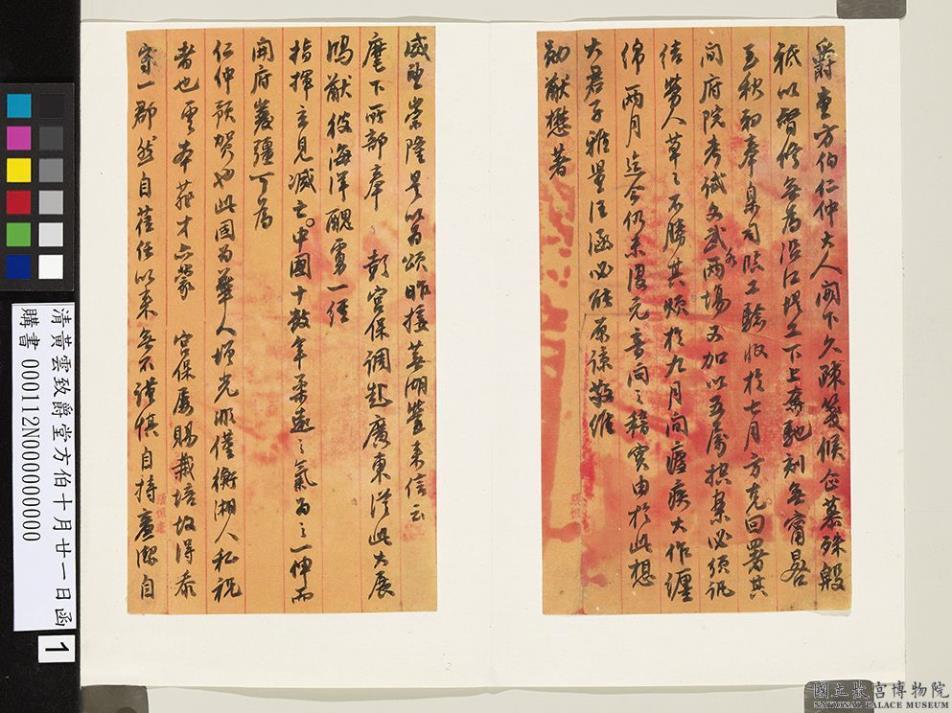 爵堂方伯仁仲大人閣下久疎箋候企慕殊殷
祇以督修無為沿江堤工下上奔馳刻無甯晷
至秋初奉臬司臨工驗收於七月方克回署其
間府院考試文武兩場又加以五屬招案必須訊
結勞人草之不勝其煩於九月間瘧疾大作纏
綿兩月迄今仍未復元音問之稽實由於此想
大君子雅量汪涵必能原諒敬維
勛猷懋著
威望崇隆是以為頌昨接蕪湖營來信云
麾下所部奉 彭宮保調赴廣東從此大展
鴻猷彼海洋醜虜一經
指揮立見滅亡中國十數年柔遠之氣為之一伸而
開府兼疆丁為
仁仲預賀也此固為華人增光順僅衡湘人私祝
者也雲本菲才亦蒙 宮保屢賜栽培故得忝
守一郡然自蒞任以來無不謹慎自持廉潔自
清黃雲致爵堂方伯十月廿一日函
購書 000112N000000000
1
國立故宮博物院
NATIONAL PALACE MUSEUM